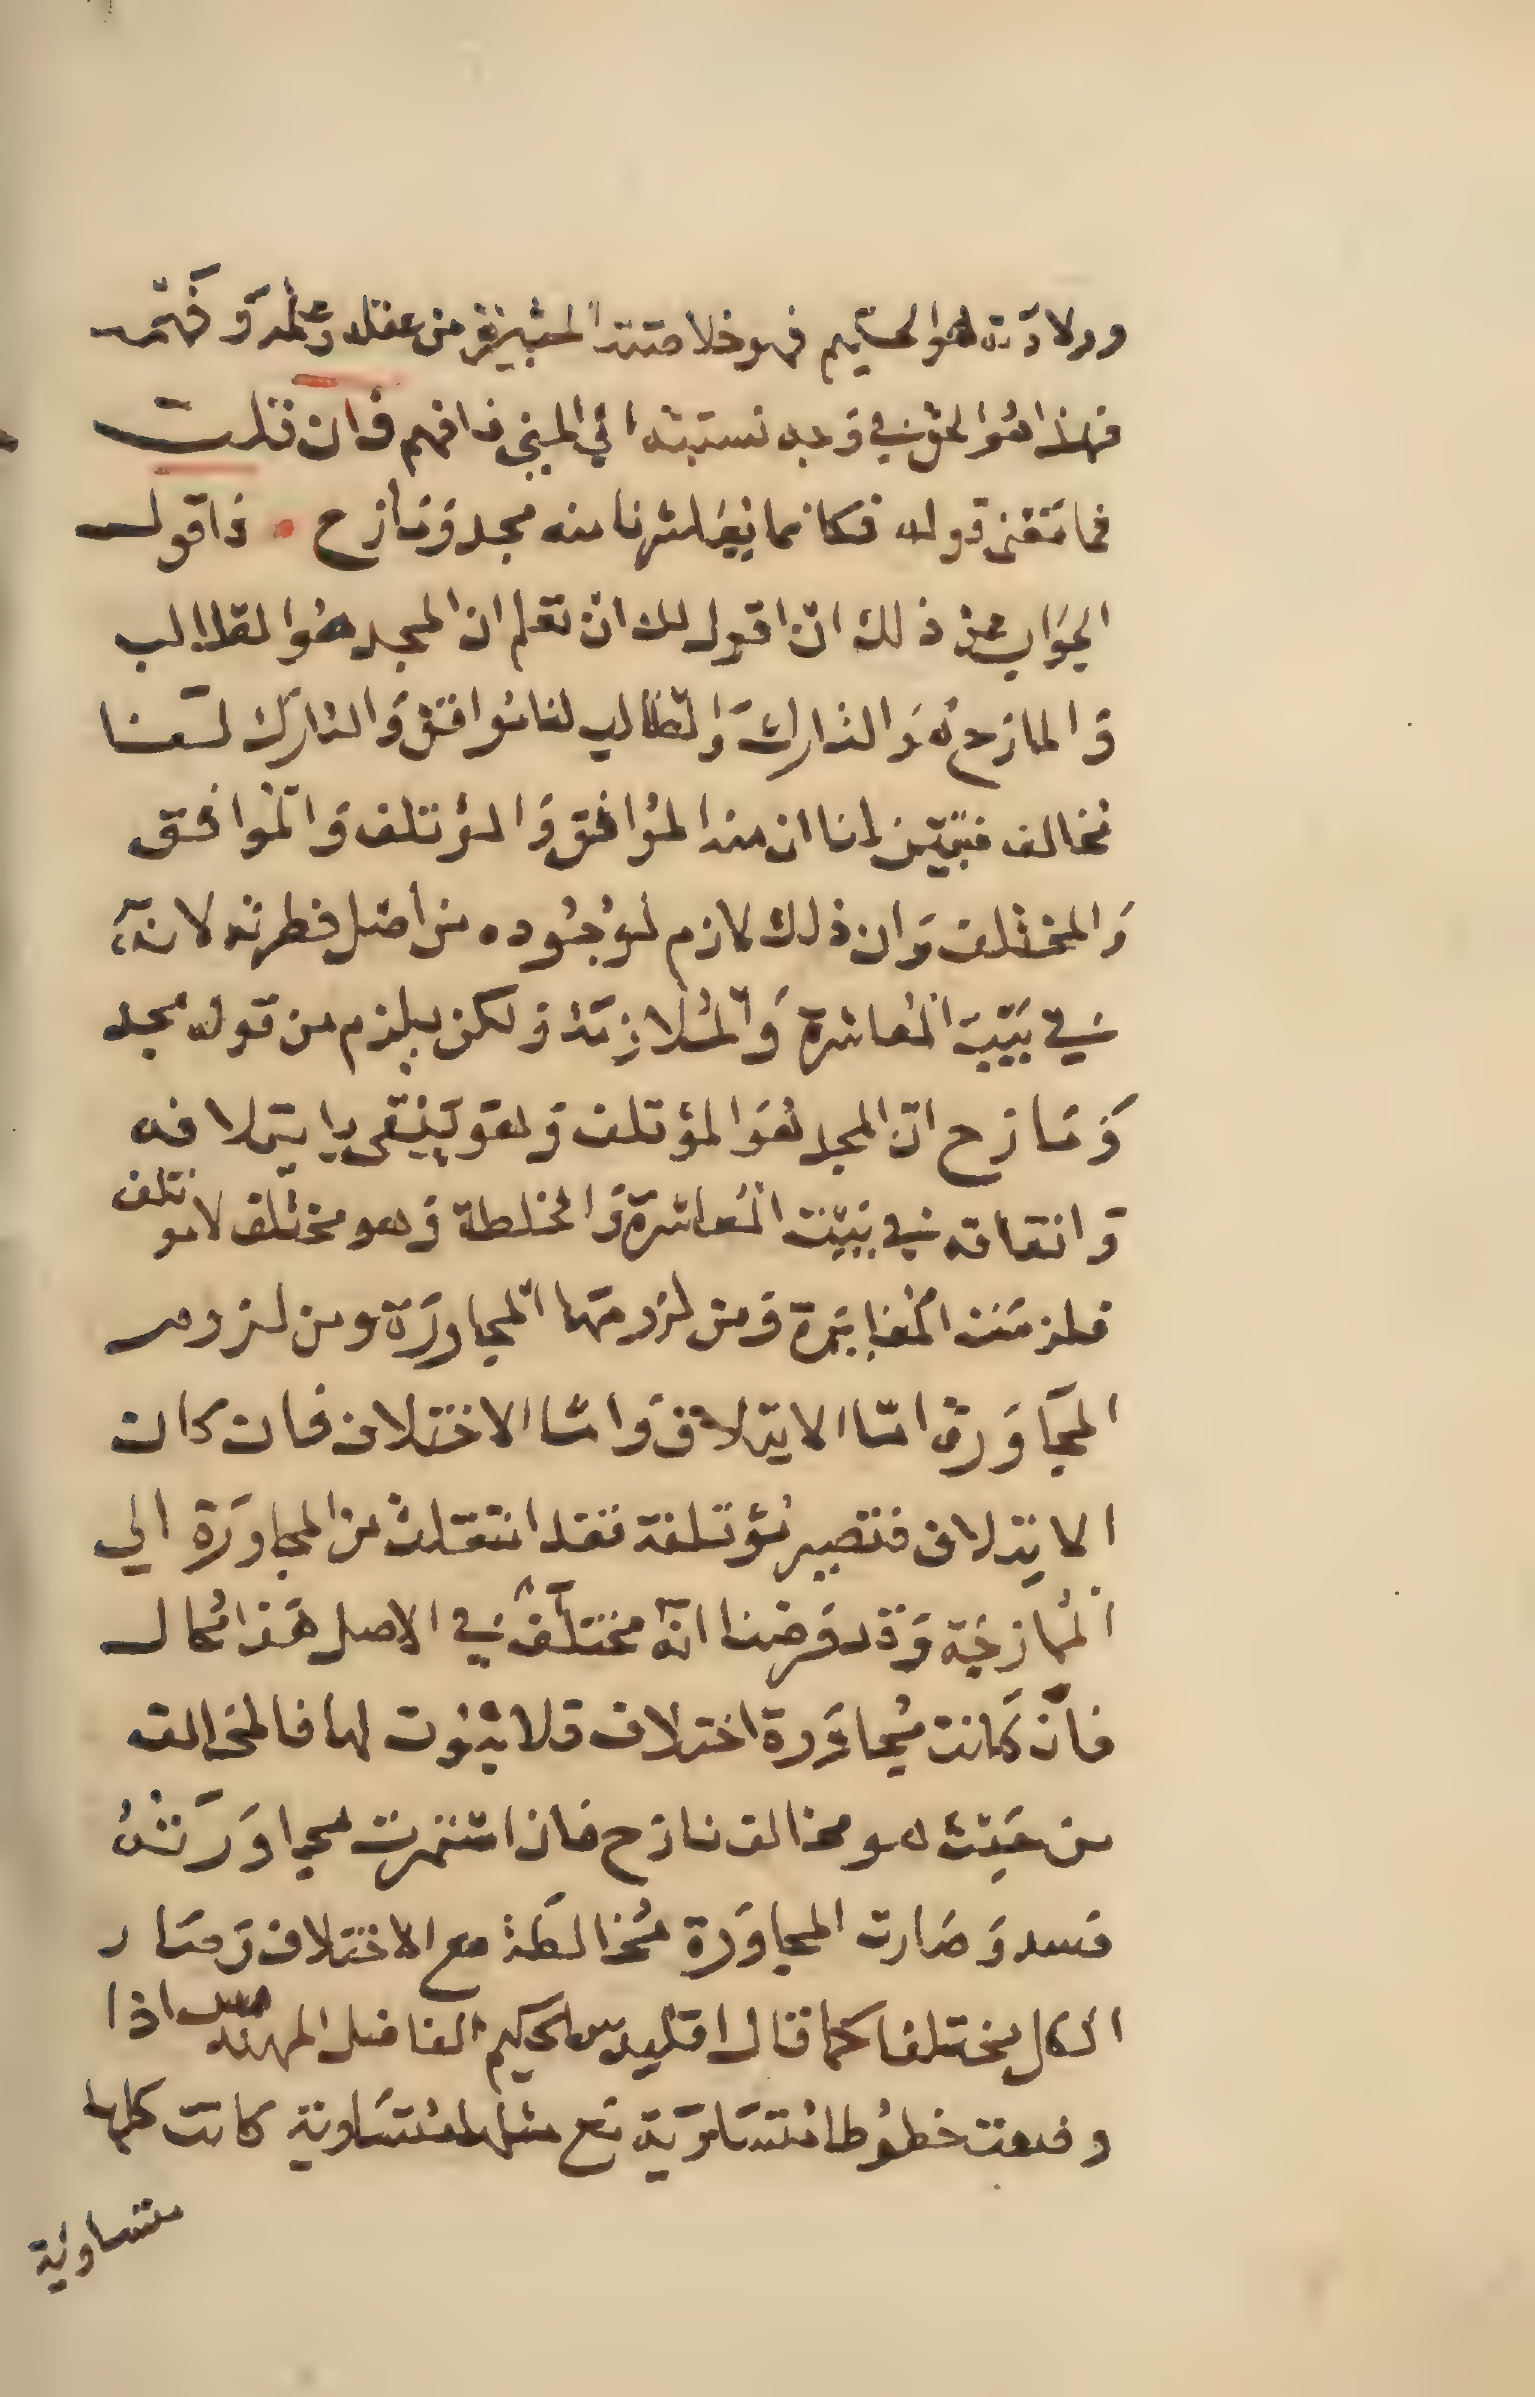 وولادته هو الحكيم فهو خلاصته المتميزة من عقله وعلمه وفهمه
فهذا هو الحق في وجه نسبته الي المني فافهم فان قلت
فما معني قوله فكانما بمعاشرنا منه مجد ومازح فاقول
الجواب عن ذلك ان اقول لك ان تعلم ان المجد هو الطالب
والمازح هو التارك والطالب لنا موافق والتارك لسنا
نخالف فتبين لنا ان منه الموافق والمؤتلف والموافق
والمختلف وان ذلك لازم لوجوده من اصل فطرته لانه
في بيت المعاشرة والملازمة ولكن يلزم من قوله مجد
ومازح ان المجد هو المؤتلف وهو يبقي بايتلافه
واتفاقه في بيت المعاشرة والخلطة وهو مختلف لا مؤتلف
فلزمت المغايرة ومن لزومها المجاورة ومن لزوم
المجاورة اما الايتلاف واما الاختلاف فان كان
الايتلاف فتصير مؤتلفة فقد انتقلت من المجاورة الي
الممازجة وقد فرضنا انه مختلف في الاصل هذا محال
فان كانت مجاورة اختلاف فلا ثبوت لها فالمخالف
من حيث هو مخالف نازح فان استمرت مجاورته
فسد وصارت المجاورة مخالطة مع الاختلاف وصار
الكل مختلفا كما قال اقليدس الحكيم الفاضل المهندس اذا
وضعت خطوطا متساوية مع مثلها متساوية كانت كلها
متساوية